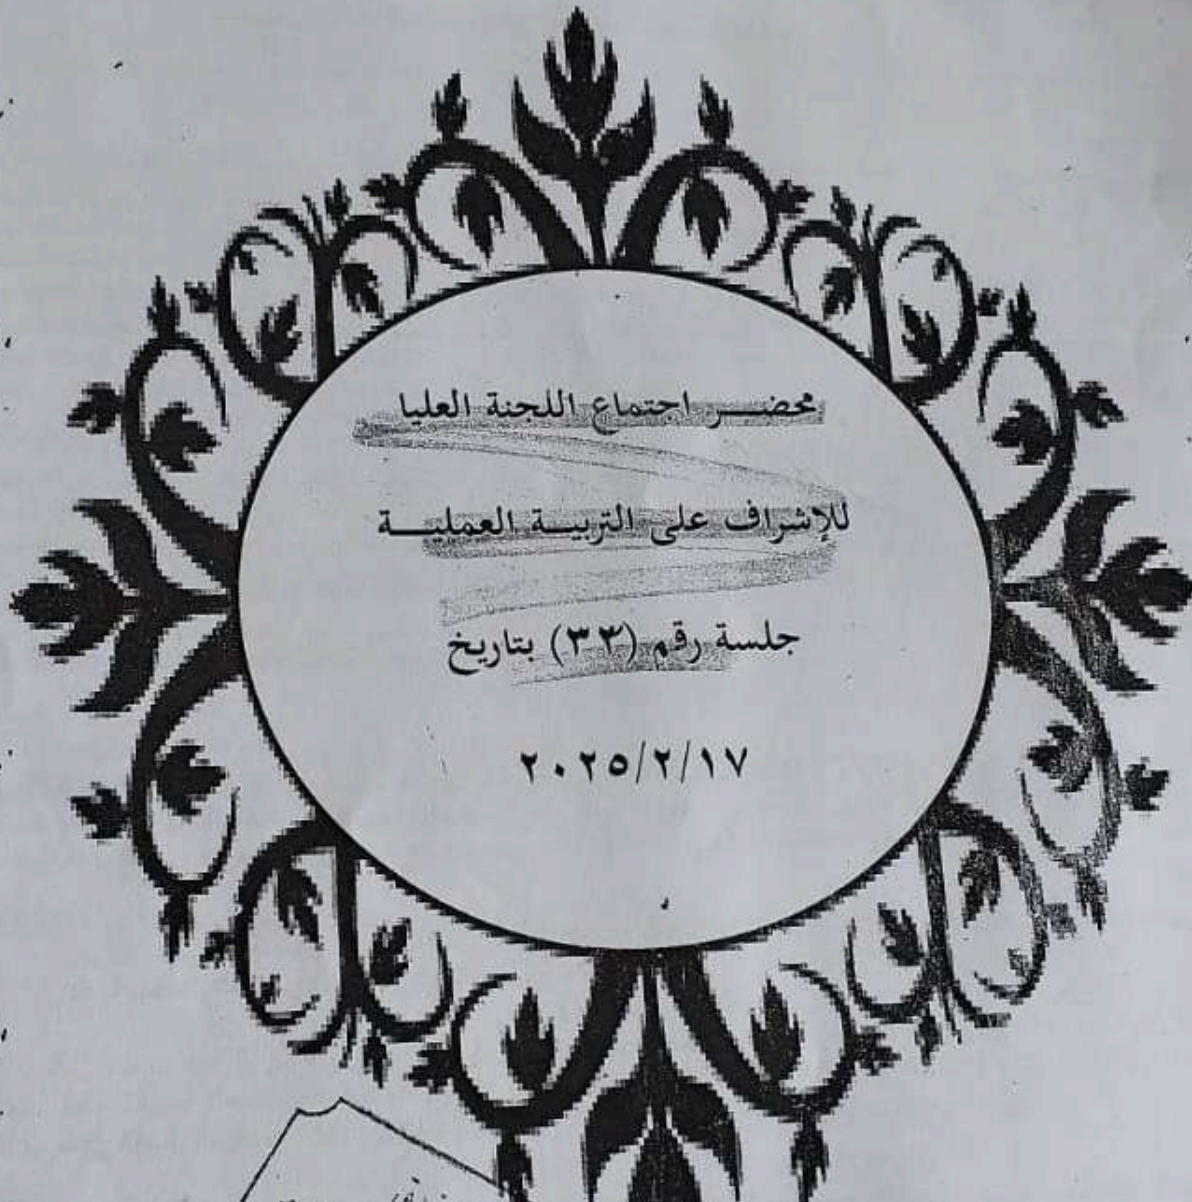 محضر اجتماع اللجنة العليا
للإشراف على التربية العملية
جلسة رقم (٣٣) بتاريخ
٢٠٢٥/٢/١٧